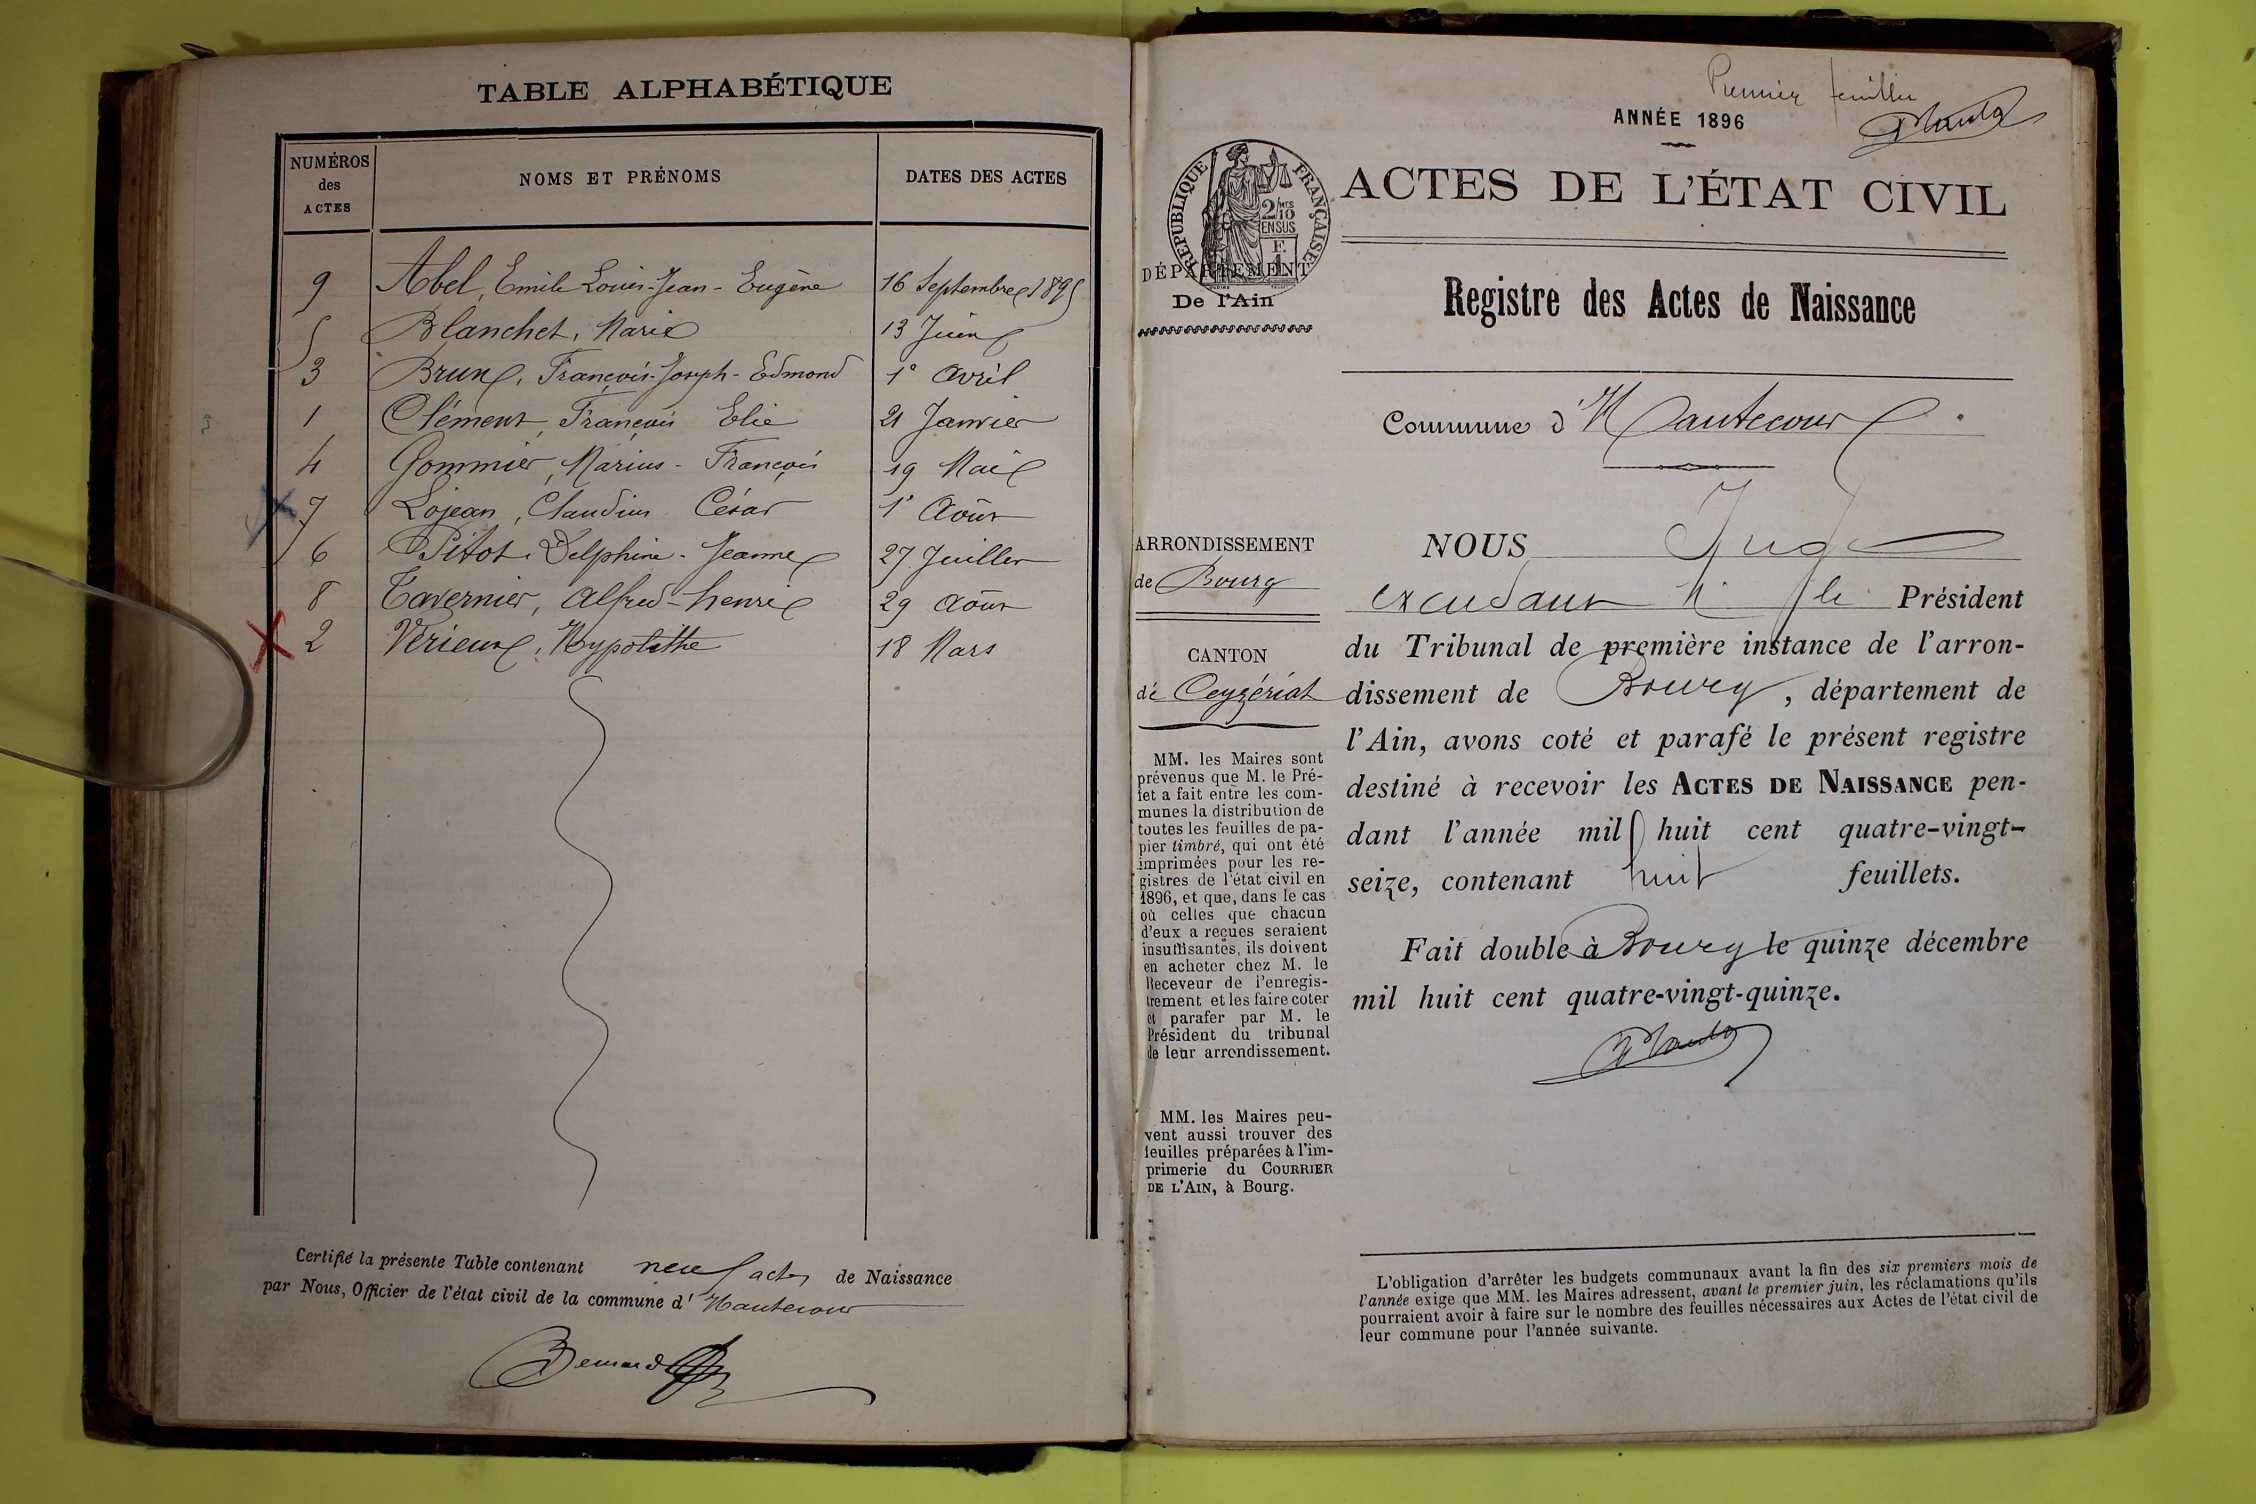 TABLE ALPHABÉTIQUE
NUMÉROS des ACTES
NOMS ET PRÉNOMS
DATES DES ACTES
9 Abel, Emile Louis-Jean-Eugène 16 Septembre 1895
5 Blanchet, Marie 13 Juin
3 Brun, François-Joseph-Edmond 1° Avril
1 Clément, François Elie 21 Janvier
4 Gommier, Marius-François 19 Mai
7 Lojean, Claudius César 1° Août
6 Pitot, Delphine-Jeanne 27 Juillet
8 Tavernier, Alfred-henri 29 Août
2 Vérieux, Hypolithe 18 Mars
Certifié la présente Table contenant neuf actes de Naissance
par Nous, Officier de l'état civil de la commune d'Hautecour
Bernard
Premier feuillet
ANNÉE 1896
RÉPUBLIQUE FRANÇAISE
2/10
EN SUS
ACTES DE L'ÉTAT CIVIL
DÉPARTEMENT
De l'Ain
Registre des Actes de Naissance
Commune d'Hautecour
ARRONDISSEMENT
de Bourg
CANTON
de Ceyzériat
MM. les Maires sont
prévenus que M. le Pré-
fet a fait entre les com-
munes la distribution de
toutes les feuilles de pa-
pier timbré, qui ont été
imprimées pour les re-
gistres de l'état civil en
1896, et que, dans le cas
où celles que chacun
d'eux a reçues seraient
insuffisantes, ils doivent
en acheter chez M. le
Receveur de l'enregis-
trement et les faire coter
et parafer par M. le
Président du tribunal
de leur arrondissement.
MM. les Maires peu-
vent aussi trouver des
feuilles préparées à l'im-
primerie du COURRIER
DE L'AIN, à Bourg.
NOUS Juge
Président
du Tribunal de première instance de l'arron-
dissement de Bourg, département de
l'Ain, avons coté et parafé le présent registre
destiné à recevoir les ACTES DE NAISSANCE pen-
dant l'année mil huit cent quatre-vingt-
seize, contenant huit feuillets.
Fait double à Bourg le quinze décembre
mil huit cent quatre-vingt-quinze.
L'obligation d'arrêter les budgets communaux avant la fin des six premiers mois de
l'année exige que MM. les Maires adressent, avant le premier juin, les réclamations qu'ils
pourraient avoir à faire sur le nombre des feuilles nécessaires aux Actes de l'état civil de
leur commune pour l'année suivante.